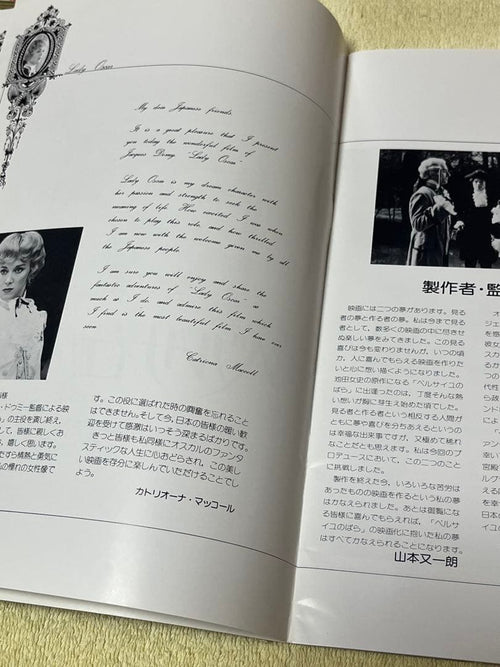 Lady Oscar
My dear Japanese friends
It is a great pleasure that I present
you today the wonderful film of
Jacques Demy "Lady Oscar"
Lady Oscar is my dream character with
her passion and strength to seek the
meaning of life. How excited I was when
chosen to play this role, and how thrilled
I am now with the welcome given me by all
the Japanese people.
I am sure you will enjoy and share the
fantastic adventures of "Lady Oscar" as
much as I do, and admire this film which
I find is the most beautiful film I have ever
seen
Catriona Maccoll
様
・ドゥミー監督による映
」の主役を演じ終え、
して、皆様に親しくお
、嬉しく思います。
ですら情熱と勇気に
の憧れの女性像で
す。この役に選ばれた時の興奮を忘れること
はできません。そして今、日本の皆様の暖い歓
迎を受けて感激はいっそう深まるばかりです。
きっと皆様も私同様にオスカルのファンタ
スティックな人生に心おどらされ、この美し
い映画を存分に楽しんでいただけることでし
ょう。
カトリオーナ・マッコール
製作者・監
映画には二つの夢があります。見る
者の夢と作る者の夢。私は今まで見る
者として、数多くの映画の中に尽きせ
ぬ楽しい夢をみてきました。この見る
喜びは今も変わりませんが、いつの頃
か、人に喜んでもらえる映画を作りた
いと心に想い描くようになりました。
池田女史の原作になる「ベルサイユの
ばら」に出逢ったのは、丁度そんな熱
い想いが胸に芽生え始めた頃でした。
見る者と作る者という相反する人間が
ともに夢や喜びを分ちあえるというの
は幸福な出来事ですが、又極めて稀れ
なことだとも思えます。私は今回のプ
ロデュースにおいて、この二つのこと
に挑戦しました。
製作を終えた今、いろいろな苦労は
あったものの映画を作るという私の夢
はかなえられました。あとは御覧にな
る皆様に喜んでもらえれば、「ベルサ
イユのばら」の映画化に抱いた私の夢
はすべてかなえられることになります。
山本又一朗